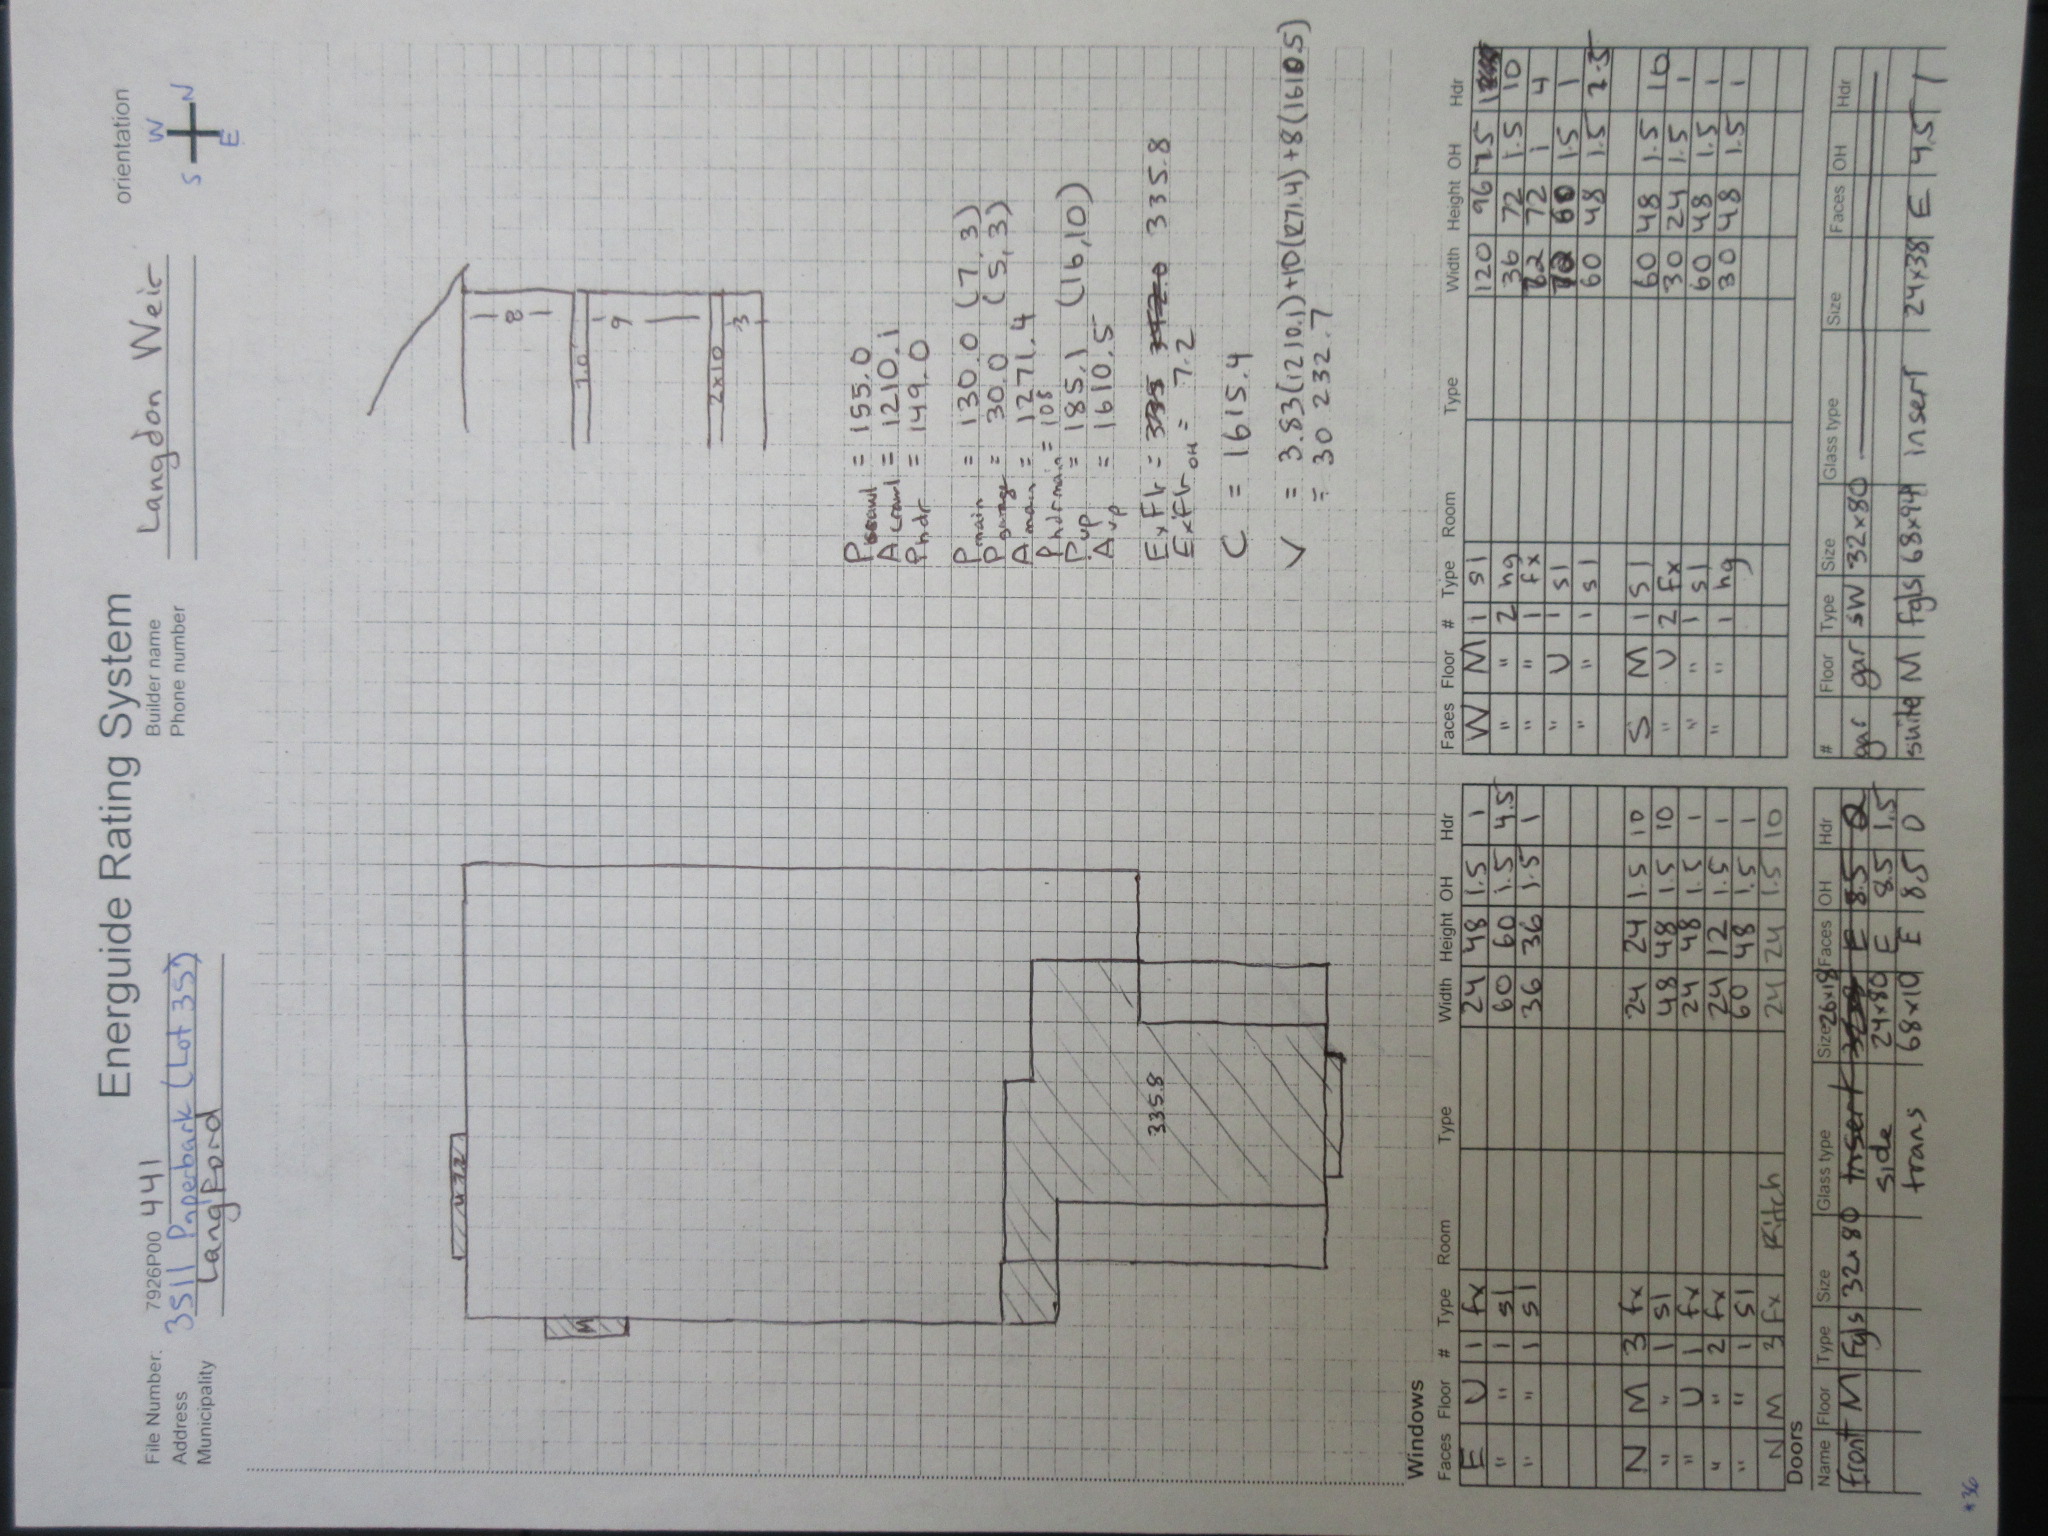 Energuide Rating System
File Number: 7926P00 441
Address 3511 Paperbark (Lot 35)
Municipality Langford
Builder name Langdon Weir
Phone number
orientation
W
S N
E
8
1.0
9
2x10
3
P crawl = 155.0
A crawl = 1210.1
P hdr = 149.0
P main = 130.0 (7, 3)
P garage = 30.0 (5, 3)
A main = 1271.4
P hdr main = 108
P up = 185.1 (16, 10)
A up = 1610.5
ExFlr = 335.8
ExFlr OH = 7.2
C = 1615.4
V = 3.83(1210.1)+10(1271.4)+8(1610.5)
= 30 232.7
M
335.8
Windows
Faces Floor # Type Room Type Width Height OH Hdr
E U 1 fx 24 48 1.5 1
" " 1 sl 60 60 1.5 4.5
" " 1 sl 36 36 1.5 1
N M 3 fx 24 24 1.5 10
" " 1 sl 48 48 1.5 10
" U 1 fx 24 48 1.5 1
" " 2 fx 24 12 1.5 1
" " 1 sl 60 48 1.5 1
N M 3 fx Kitch 24 24 1.5 10
Faces Floor # Type Room Type Width Height OH Hdr
W M 1 sl 120 96 7.5
" " 2 hg 36 72 1.5 10
" " 1 fx 72 1 4
" U 1 sl 60 1.5 1
" " 1 sl 60 48 1.5 2.5
S M 1 sl 60 48 1.5 10
" U 2 fx 30 24 1.5 1
" " 1 sl 60 48 1.5 1
" " 1 hg 30 48 1.5 1
Doors
Name Floor Type Size Glass type Size Faces OH Hdr
front M Fgls 32x80 insert 26x18 E 8.5
side 24x80 E 8.5 1.5
trans 68x10 E 8.5 0
# Floor Type Size Glass type Size Faces OH Hdr
gar gar sw 32x80
suite M fgls 68x94 insert 24x38 E 4.5 1
*36